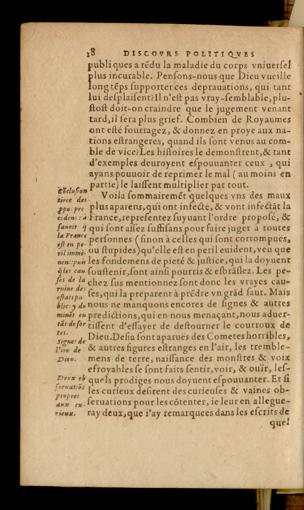 18 DISCOVRS POLITIQVES
publiques a rēdu la maladie du corps vniuersel
plus incurable. Pensons-nous que Dieu vueille
long tēps supporter ces deprauations, qui tant
lui desplaisent? Il n'est pas vray-semblable, plu-
stost doit-on craindre que le jugement venant
tard, il sera plus grief. Combien de Royaumes
ont esté fourragez, & donnez en proye aux na-
tions estrangeres, quand ils sont venus au com-
ble de vice? Les histoires le demonstrent, & tant
d'exemples deuroyent espouuanter ceux, qui
ayans pouuoir de reprimer le mal (au moins en
partie) le laissent multiplier par tout.
Voila sommairemēt quelques vns des maux
plus aparens, qui ont infecté, & vont infectāt la
France, representez suyuant l'ordre proposé, &
qui sont assez suffisans pour faire juger à toutes
personnes (sinon à celles qui sont corrompues,
ou stupides) qu'elle est en peril euident, veu que
les fondemens de pieté & justice, qui la doyuent
soustenir, sont ainsi pourris & esbrālez. Les pe-
chez sus mentionnez sont donc les vrayes cau-
ses, qui la preparent à prēdre vn grād saut. Mais
nous ne manquons encores de signes & autres
predictions, qui en nous menaçant, nous aduer-
tissent d'essayer de destourner le courroux de
Dieu. Desia sont aparues des Cometes horribles,
& autres figures estranges en l'air, les tremble-
mens de terre, naissance des monstres & voix
efroyables se sont faits sentir, voir, & ouir, les-
quels prodiges nous doyuent espouuanter. Et si
les curieux desirent des curieuses & vaines ob-
seruations pour les cōtenter, ie leur en allegue-
ray deux, que i'ay remarquees dans les escrits de
quel
Cōclusion
tiree des
France
est en pe-
ril immi-
nen:
ses de la
ruine des
Signe: de
l'ire de
Dieu.
Deux ob
seruatiōs
propres
aux cu-
rieux.